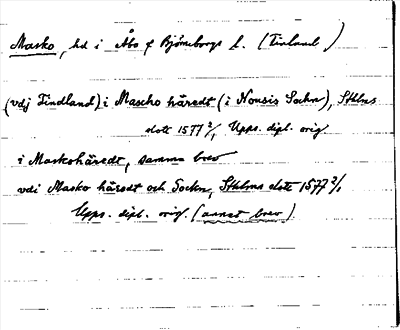 Masko, hd i Åbo o Björneborgs l. (Finland)
(vdj Findland) i Mascho häredt (i Nousis Sockn), Sthlms
slott 1577 2/1, Upps. dipl. orig
i Maskohäredt, samma brev
vdi Masko häredt och Sockn, Sthlms slott 1577 2/1
Upps. dipl. orig. (annat brev)